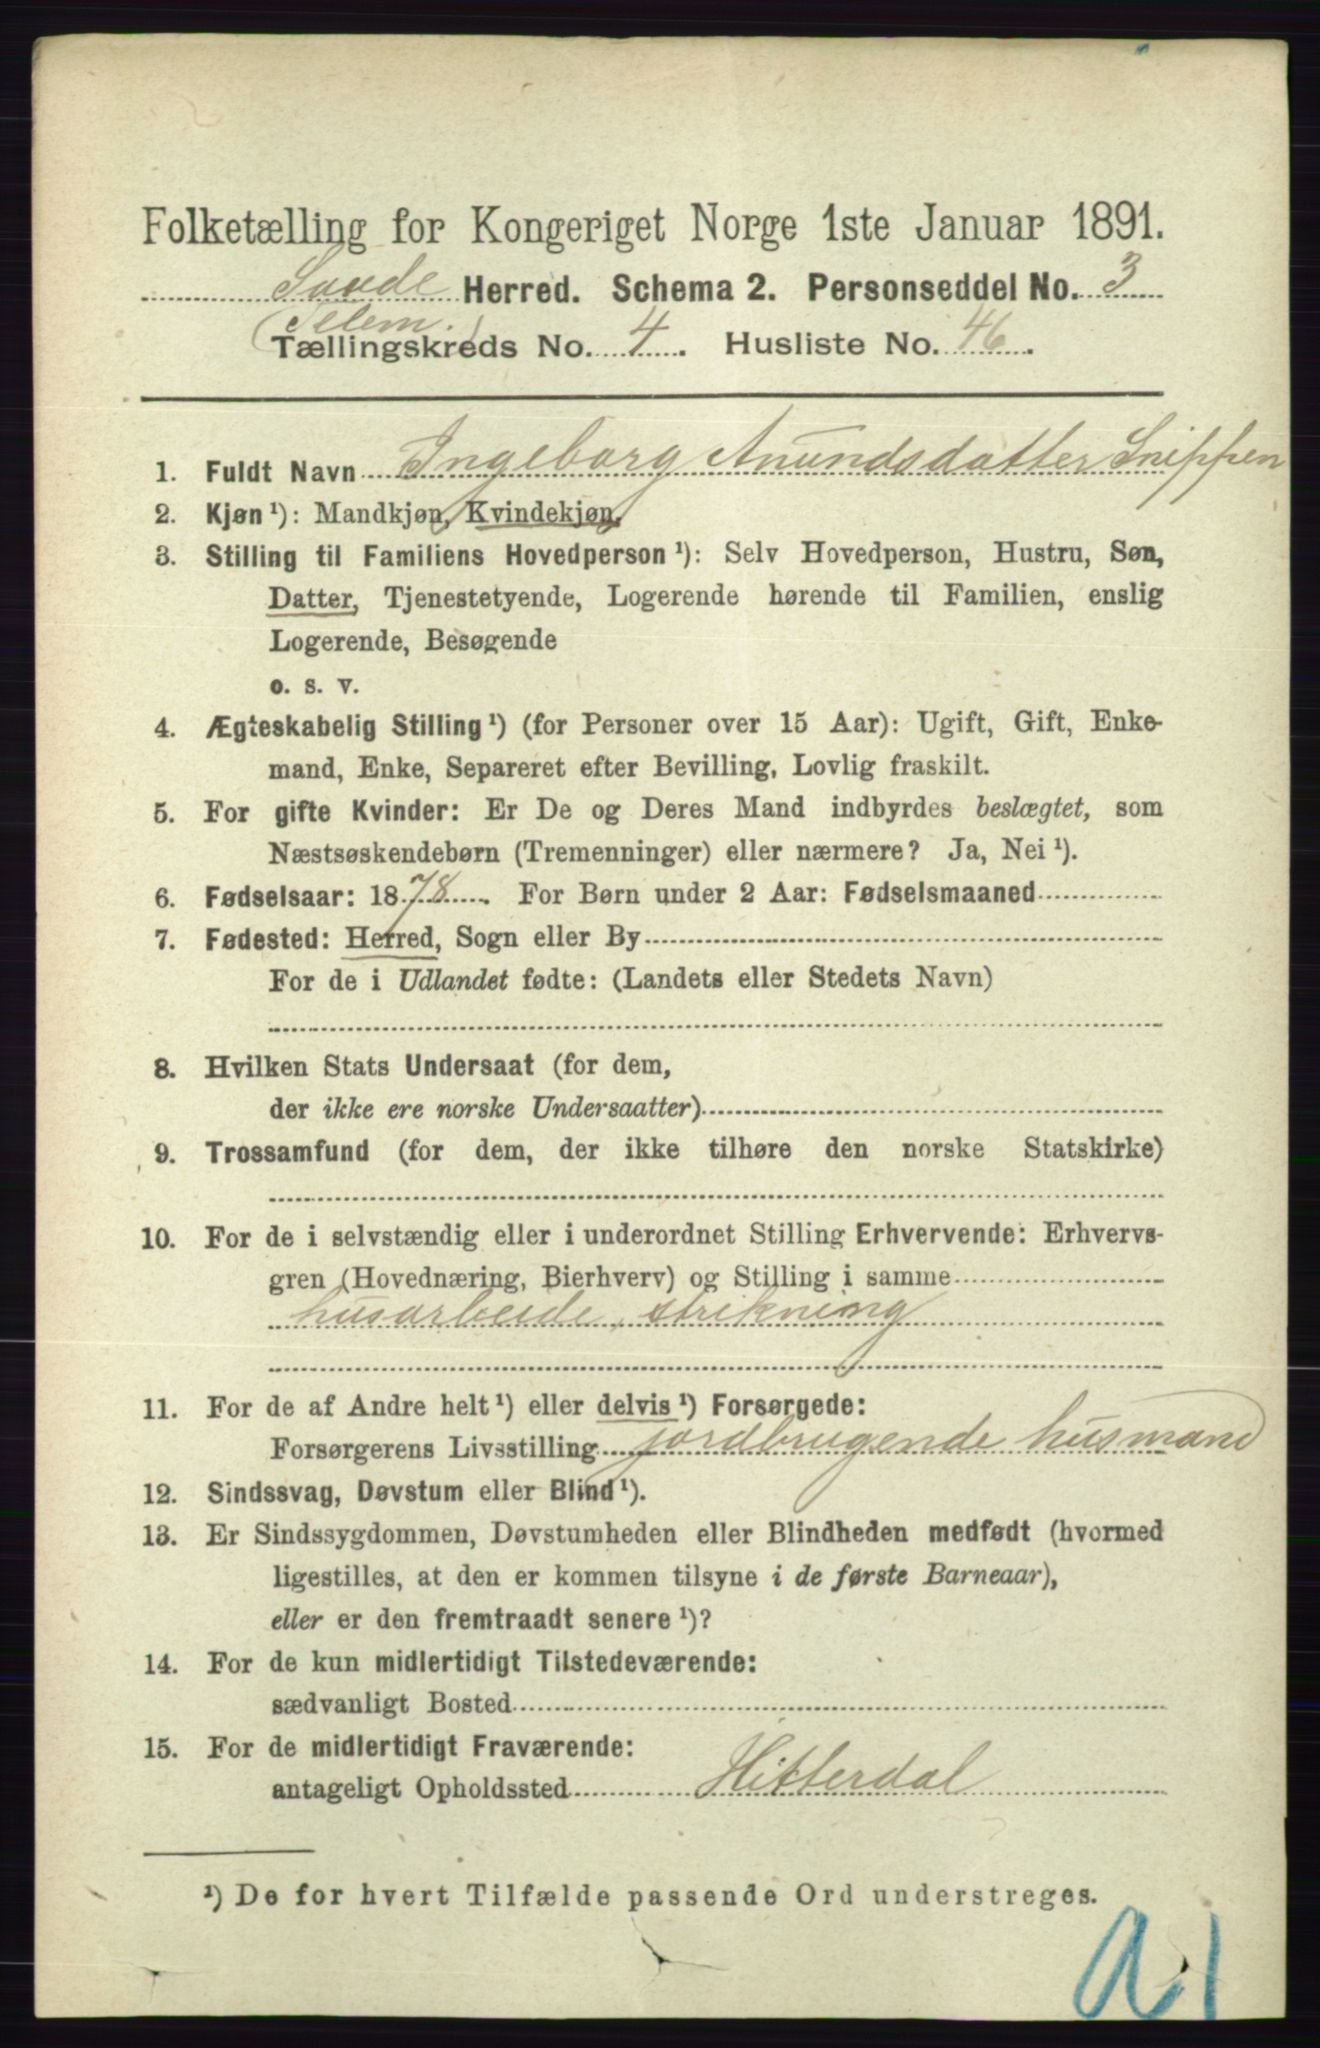 Folketælling for Kongeriget Norge 1ste Januar 1891.
Saude Herred. Schema 2. Personseddel No. 3
(Telem.)
Tællingskreds No. 4. Husliste No. 46.
1. Fuldt Navn Ingeborg Anundsdatter Snippen
2. Kjøn ¹): Mandkjøn, Kvindekjøn.
3. Stilling til Familiens Hovedperson ¹): Selv Hovedperson, Hustru, Søn,
Datter, Tjenestetyende, Logerende hørende til Familien, enslig
Logerende, Besøgende
o. s. v.
4. Ægteskabelig Stilling ¹) (for Personer over 15 Aar): Ugift, Gift, Enke-
mand, Enke, Separeret efter Bevilling, Lovlig fraskilt.
5. For gifte Kvinder: Er De og Deres Mand indbyrdes beslægtet, som
Næstsøskendebørn (Tremenninger) eller nærmere? Ja, Nei ¹).
6. Fødselsaar: 1878. For Børn under 2 Aar: Fødselsmaaned
7. Fødested: Herred, Sogn eller By
For de i Udlandet fødte: (Landets eller Stedets Navn)
8. Hvilken Stats Undersaat (for dem,
der ikke ere norske Undersaatter)
9. Trossamfund (for dem, der ikke tilhøre den norske Statskirke)
10. For de i selvstændig eller i underordnet Stilling Erhvervende: Erhvervs-
gren (Hovednæring, Bierhverv) og Stilling i samme
husarbeide, strikning
11. For de af Andre helt ¹) eller delvis ¹) Forsørgede:
Forsørgerens Livsstilling jordbrugende husmand
12. Sindssvag, Døvstum eller Blind ¹).
13. Er Sindssygdommen, Døvstumheden eller Blindheden medfødt (hvormed
ligestilles, at den er kommen tilsyne i de første Barneaar),
eller er den fremtraadt senere ¹)?
14. For de kun midlertidigt Tilstedeværende:
sædvanligt Bosted
15. For de midlertidigt Fraværende:
antageligt Opholdssted Hitterdal
¹) De for hvert Tilfælde passende Ord understreges.
a.1